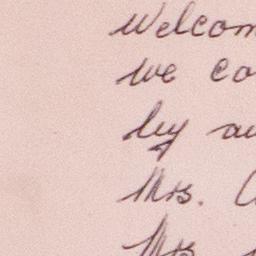 Welcom
we co
by au
Mrs.
Mrs